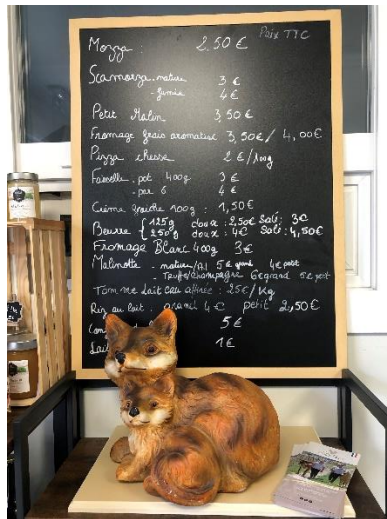 Prix TTC
Mozza : 2,50 €
Scamorza - nature 3 €
- fumée 4 €
Petit Malin 3,50 €
Fromage frais aromatisé 3,50€ / 4,00€
Pizza cheese 2 € / 100g
Faisselle - pot 400g 3 €
- par 6 4 €
Crème fraîche 100g : 1,50€
Beurre { 125g doux : 2,50€ Salé : 3€
250g doux : 4€ Salé : 4,50€
Fromage Blanc 400g 3€
Malinotte - nature/ 5€ grand 4€ petit
Truffe/champagne 6€ grand 5€ petit
Tomme lait cru affinée : 25€/Kg
Riz au lait : grand 4€ petit 2,50€
5€
Lait 1€